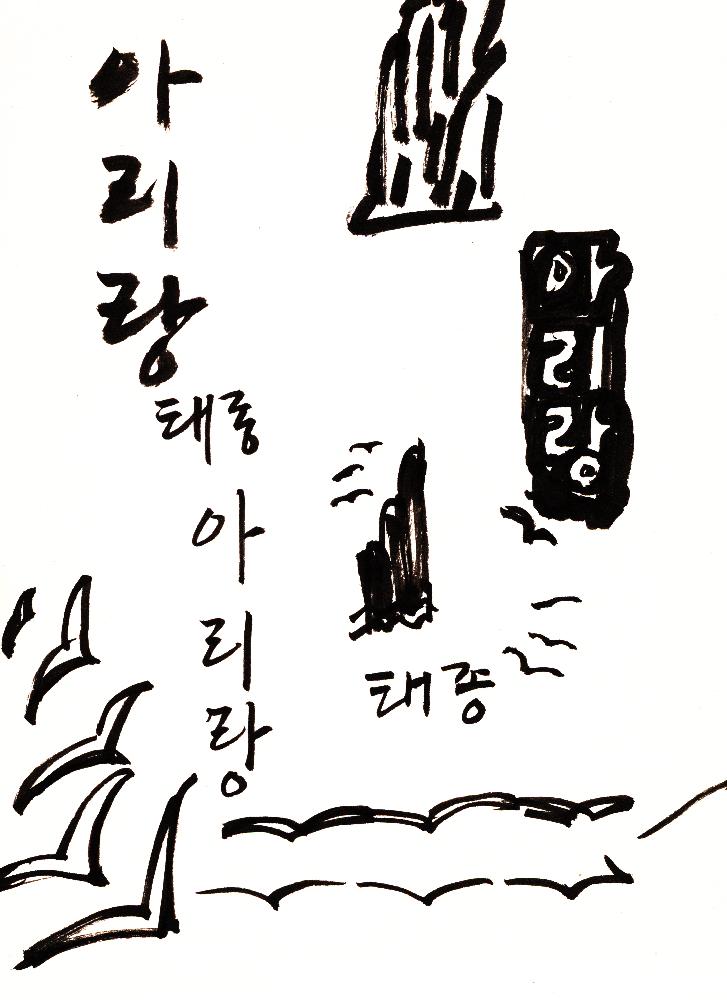 아리랑
태종
아리랑
아리랑
태종